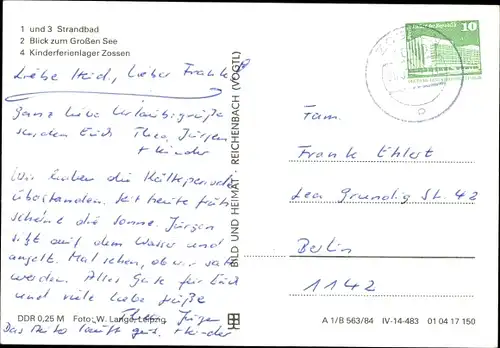 1 und 3 Strandbad
2 Blick zum Großen See
4 Kinderferienlager Zossen
Liebe Heid, lieber Frank!
Ganz liebe Urlaubsgrüße
senden Euch Thea, Jürgen
+ Kinder
Wir haben die Kälteperiode
überstanden. Seit heute früh
scheint die Sonne. Jürgen
sitzt auf dem Wasser und
angelt. Mal sehen, ob wir satt
werden. Alles Gute für Euch
und viele liebe Grüße
Thea, Jürgen
+ Kinder
Das Auto läuft gut.
DDR 0,25 M Foto: W. Lange, Leipzig
BILD UND HEIMAT · REICHENBACH (VOGTL)
10
Fam.
Frank Ehlert
Lea Grundig St. 42
Berlin
1142
A 1/B 563/84 IV-14-483 01 04 17 150